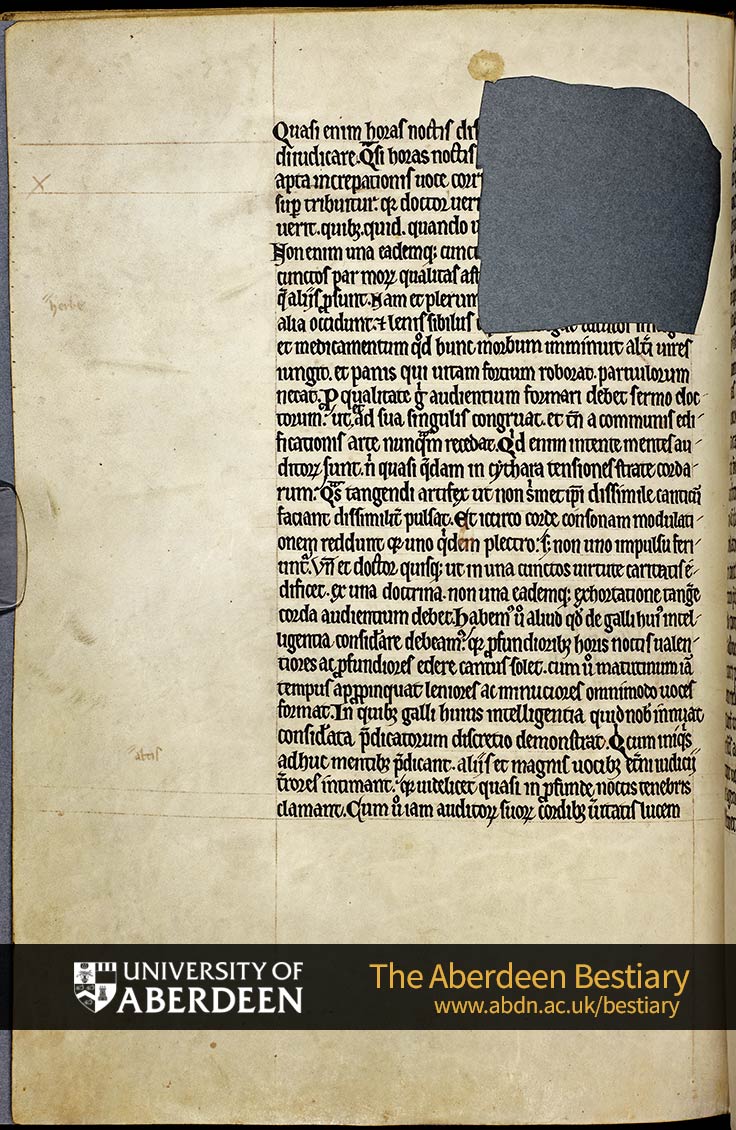 Quasi enim horas noctis dis
diiudicare. Qsi horas noctis
apta increpationis uoce corr
sup tribuitur. qr doctor ueri
uerit. quibz. quid. quando u
Non enim una eademq; cunct
cunctos par morz qualitas ast
q̄ alijs psunt. Nam et plerum
alia occidunt. ⁊ lenis sibilus catulos
et medicamentum qd hunc morbum imminuit alti uires
iungit. et panis qui uitam fortium roborat. paruulorum
necat. P qualitate g audientium formari debet sermo doc
torum. ut ad sua singulis congruat. et tn̄ a communis edi
ficationis arte nunqm recedat. Qd enim intente mentes au
ditorz sunt. n̄ quasi qdam in cythara tensiones strate corda
rum. Qs tangendi artifex ut non smet ipi dissimile canticū
faciant dissimilit pulsat. Et iccirco corde consonam modulati
onem reddunt qr uno qdem plectro. s; non uno impulsu feri
unt. Vn̄ et doctor quisq; ut in una cunctos uirtute caritatis e
dificet. ex una doctrina. non una eademq; exhortatione tang̃e
corda audientium debet. Habem̾ ů aliud qd de galli hui̾ intel
ligentia considare debeam̾. qr pfundioribz horis noctis ualen
tiores ac pfundiores edere cantus solet. cum ů matutinum iā
tempus appinquat leniores ac minuciores omnimodo uoces
format. In quibz galli huius intelligentia quid nob innuat
considata p̄dicatorum discretio demonstrat. Qcum iniqs
adhuc mentibz p̄dicant. altis et magnis uocibz et̄ni iudicij
t̄rores intimant. qr uidelicet quasi in pfunde noctis tenebris
clamant. Cum ů iam auditorz suorz cordibz ūitatis lucem
herbe
altis
UNIVERSITY OF
ABERDEEN
The Aberdeen Bestiary
www.abdn.ac.uk/bestiary